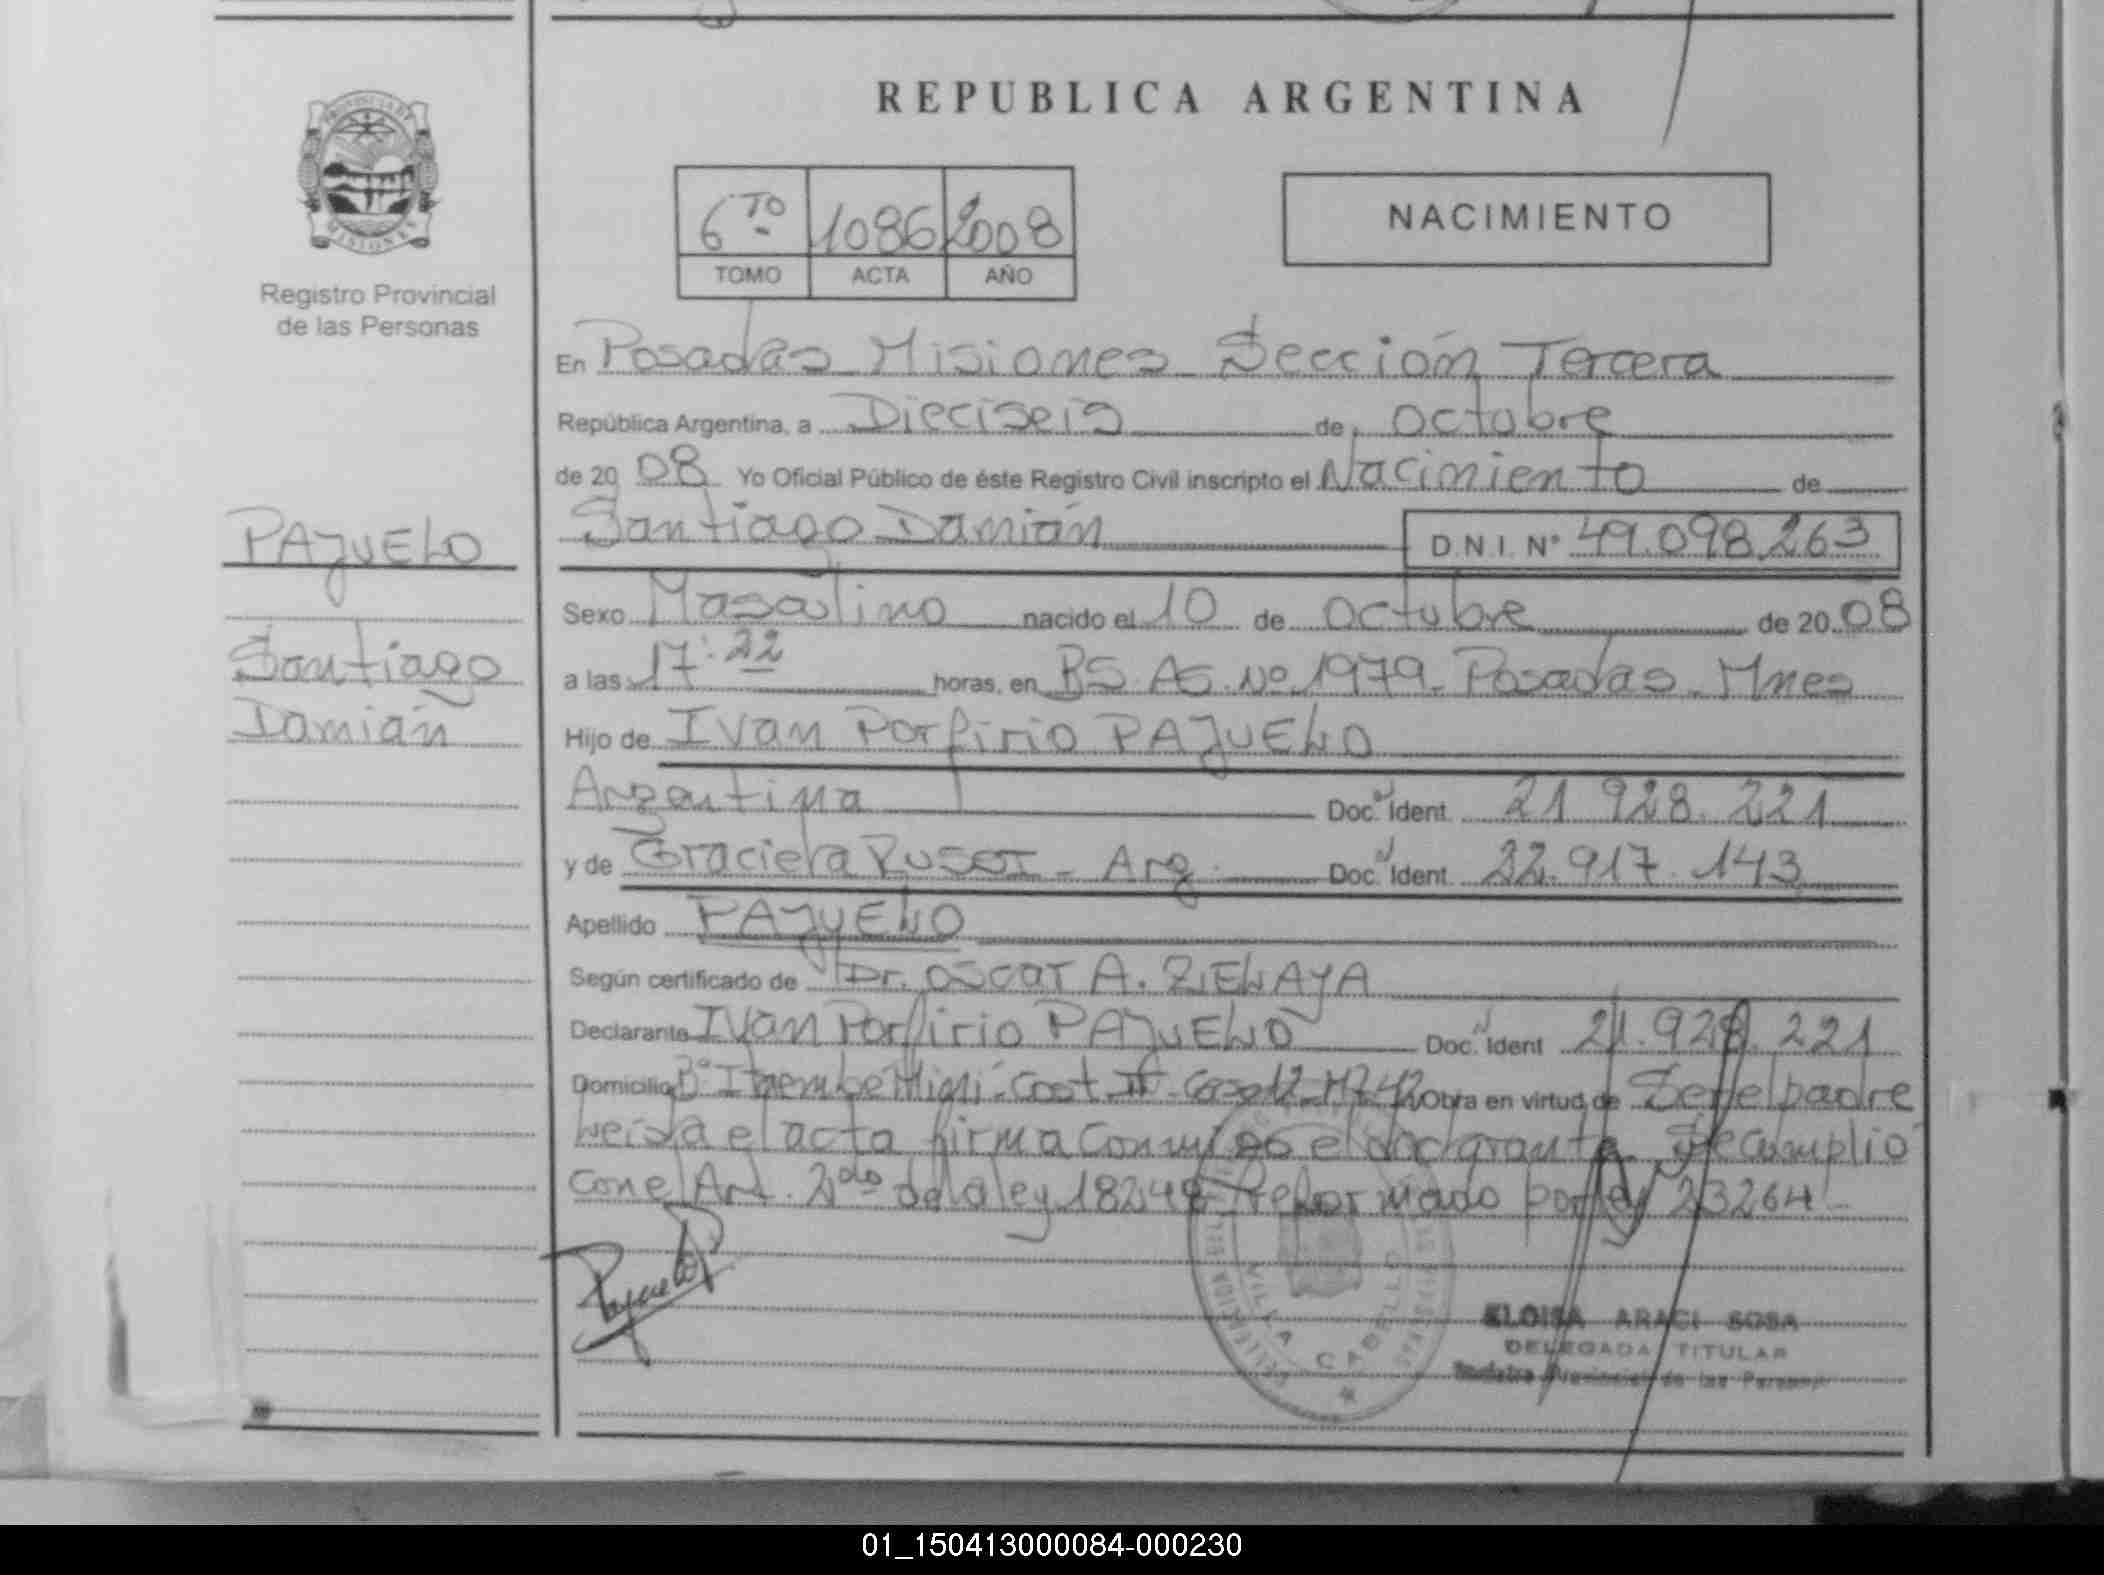 REPUBLICA ARGENTINA
PROVINCIA DE
MISIONES
Registro Provincial
de las Personas
6TO 1086 2008
TOMO ACTA AÑO
NACIMIENTO
PAJUELO
Santiago
Damián
En Posadas Misiones Sección Tercera
República Argentina, a Dieciseis de octubre
de 20 08 Yo Oficial Público de éste Registro Civil inscripto el Nacimiento de
Santiago Damián D.N.I. Nº 49.098.263
Sexo Masculino nacido el 10 de octubre de 20 08
a las 17:22 horas, en BS. AS. Nº 1979 Posadas Mnes
Hijo de Ivan Porfirio PAJUELO
Argentina Doc. Ident. 21.928.221
y de Graciela Arg. Doc. Ident. 22.917.143
Apellido PAJUELO
Según certificado de Dr. OSCAR A. ZELAYA
Declarante Ivan Porfirio PAJUELO Doc. Ident 21.928.221
Domicilio Bº Itaembe Mini Casa 12 MZ 42 Obra en virtud de Ser el padre
Leida el acta firma conmigo el declarante Se cumplio
con el Art. 2do de la ley 18248 Reformado por ley 23264
VILLA CABELLO
ELOISA ARACI SOSA
DELEGADA TITULAR
Registro Provincial de las Personas
01_150413000084-000230